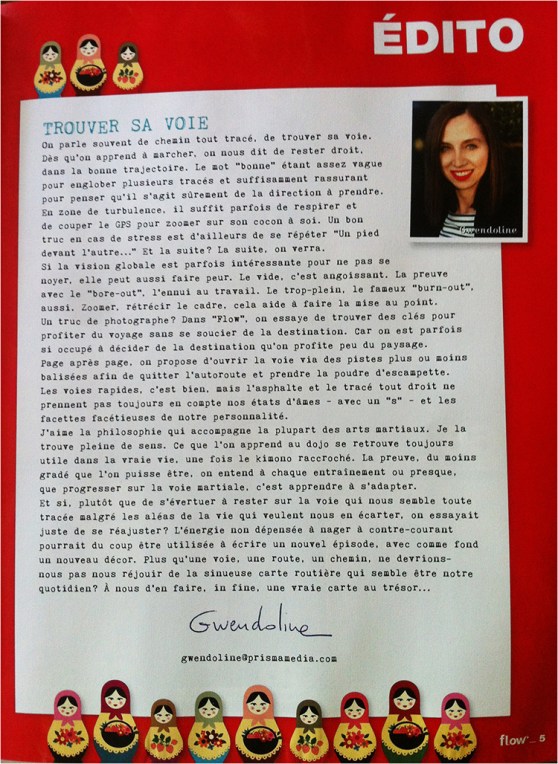 ÉDITO
TROUVER SA VOIE
On parle souvent de chemin tout tracé, de trouver sa voie.
Dès qu'on apprend à marcher, on nous dit de rester droit,
dans la bonne trajectoire. Le mot "bonne" étant assez vague
pour englober plusieurs tracés et suffisamment rassurant
pour penser qu'il s'agit sûrement de la direction à prendre.
En zone de turbulence, il suffit parfois de respirer et
de couper le GPS pour zoomer sur son cocon à soi. Un bon
truc en cas de stress est d'ailleurs de se répéter "Un pied
devant l'autre..." Et la suite? La suite, on verra.
Si la vision globale est parfois intéressante pour ne pas se
noyer, elle peut aussi faire peur. Le vide, c'est angoissant. La preuve
avec le "bore-out", l'ennui au travail. Le trop-plein, le fameux "burn-out",
aussi. Zoomer, rétrécir le cadre, cela aide à faire la mise au point.
Un truc de photographe? Dans "Flow", on essaye de trouver des clés pour
profiter du voyage sans se soucier de la destination. Car on est parfois
si occupé à décider de la destination qu'on profite peu du paysage.
Page après page, on propose d'ouvrir la voie via des pistes plus ou moins
balisées afin de quitter l'autoroute et prendre la poudre d'escampette.
Les voies rapides, c'est bien, mais l'asphalte et le tracé tout droit ne
prennent pas toujours en compte nos états d'âmes - avec un "s" - et les
facettes facétieuses de notre personnalité.
J'aime la philosophie qui accompagne la plupart des arts martiaux. Je la
trouve pleine de sens. Ce que l'on apprend au dojo se retrouve toujours
utile dans la vraie vie, une fois le kimono raccroché. La preuve, du moins
gradé que l'on puisse être, on entend à chaque entraînement ou presque,
que progresser sur la voie martiale, c'est apprendre à s'adapter.
Et si, plutôt que de s'évertuer à rester sur la voie qui nous semble toute
tracée malgré les aléas de la vie qui veulent nous en écarter, on essayait
juste de se réajuster? L'énergie non dépensée à nager à contre-courant
pourrait du coup être utilisée à écrire un nouvel épisode, avec comme fond
un nouveau décor. Plus qu'une voie, une route, un chemin, ne devrions-
nous pas nous réjouir de la sinueuse carte routière qui semble être notre
quotidien? À nous d'en faire, in fine, une vraie carte au trésor...
Gwendoline
Gwendoline
gwendoline@prismamedia.com
flow_ 5